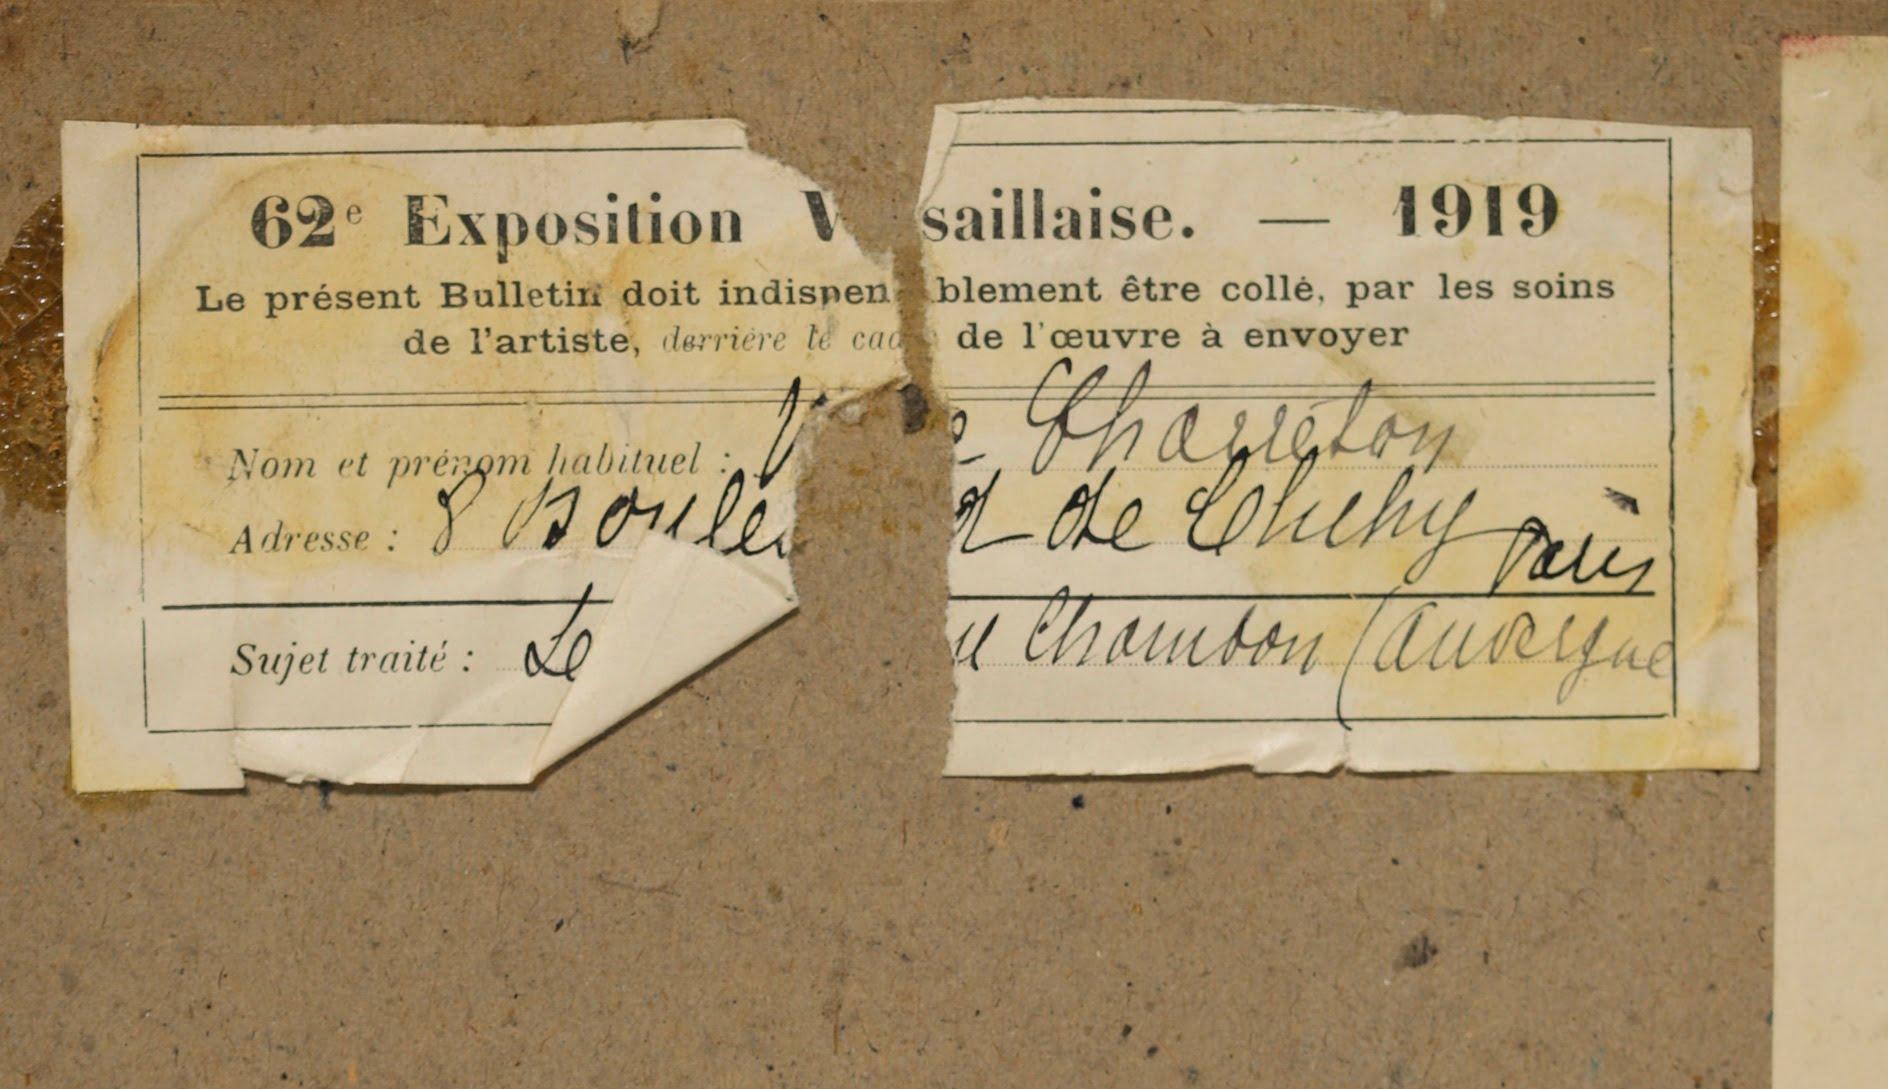 62e Exposition V saillaise. — 1919
Le présent Bulletin doit indispen blement être collé, par les soins
de l'artiste, derrière le cad de l'œuvre à envoyer
Nom et prénom habituel : V e Charreton
Adresse : 8 Boulev d de Clichy Paris
Sujet traité : Le Chambon (Auvergne